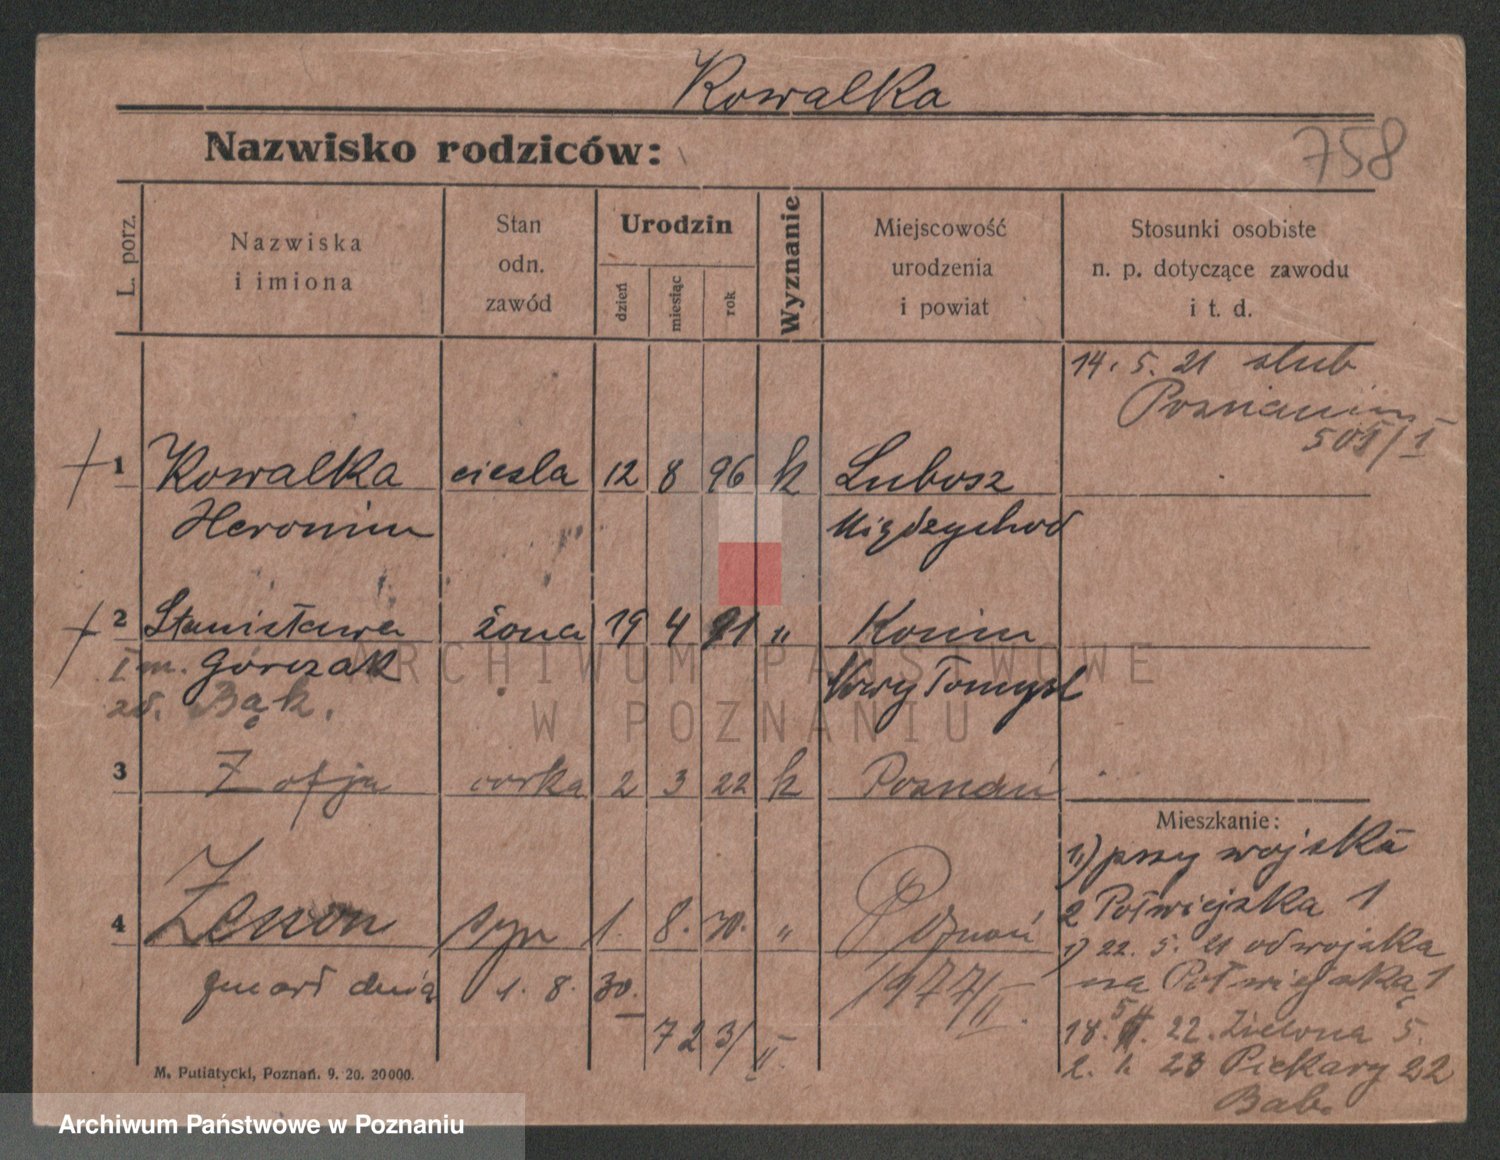 Kowalka
Nazwisko rodziców:
758
L. porz.
Nazwiska
i imiona
Stan
odn.
zawód
Urodzin
dzień
miesiąc
rok
Wyznanie
Miejscowość
urodzenia
i powiat
Stosunki osobiste
n. p. dotyczące zawodu
i t. d.
14. 5. 21 slub
Poznaniu
501/I
1 Kowalka ciesla 12 8 96 k Lubosz
Heronim Międzychod
2 Stanisława żona 19 4 91 " Konin
I m. Górczak Nowy Tomysl
zd. Bąk.
3 Zofja corka 2 3 22 k Poznań
Mieszkanie:
1) przy wojska
2 Połwiejska 1
4 Zenon syn 1. 8. 30. " Poznań
1) 22. 5. 21 od wojska
na Połwiejską 1
zmarł dnia 1. 8. 30. 1977/II.
723/II
18. 5. 22. Zielona 5.
2. 1. 23 Piekary 22
Bab.
M. Putiatycki, Poznań. 9. 20. 20000.
ARCHIWUM PAŃSTWOWE
W POZNANIU
Archiwum Państwowe w Poznaniu